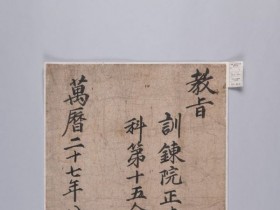 教旨
訓鍊院正
科第十五人
萬曆二十七年